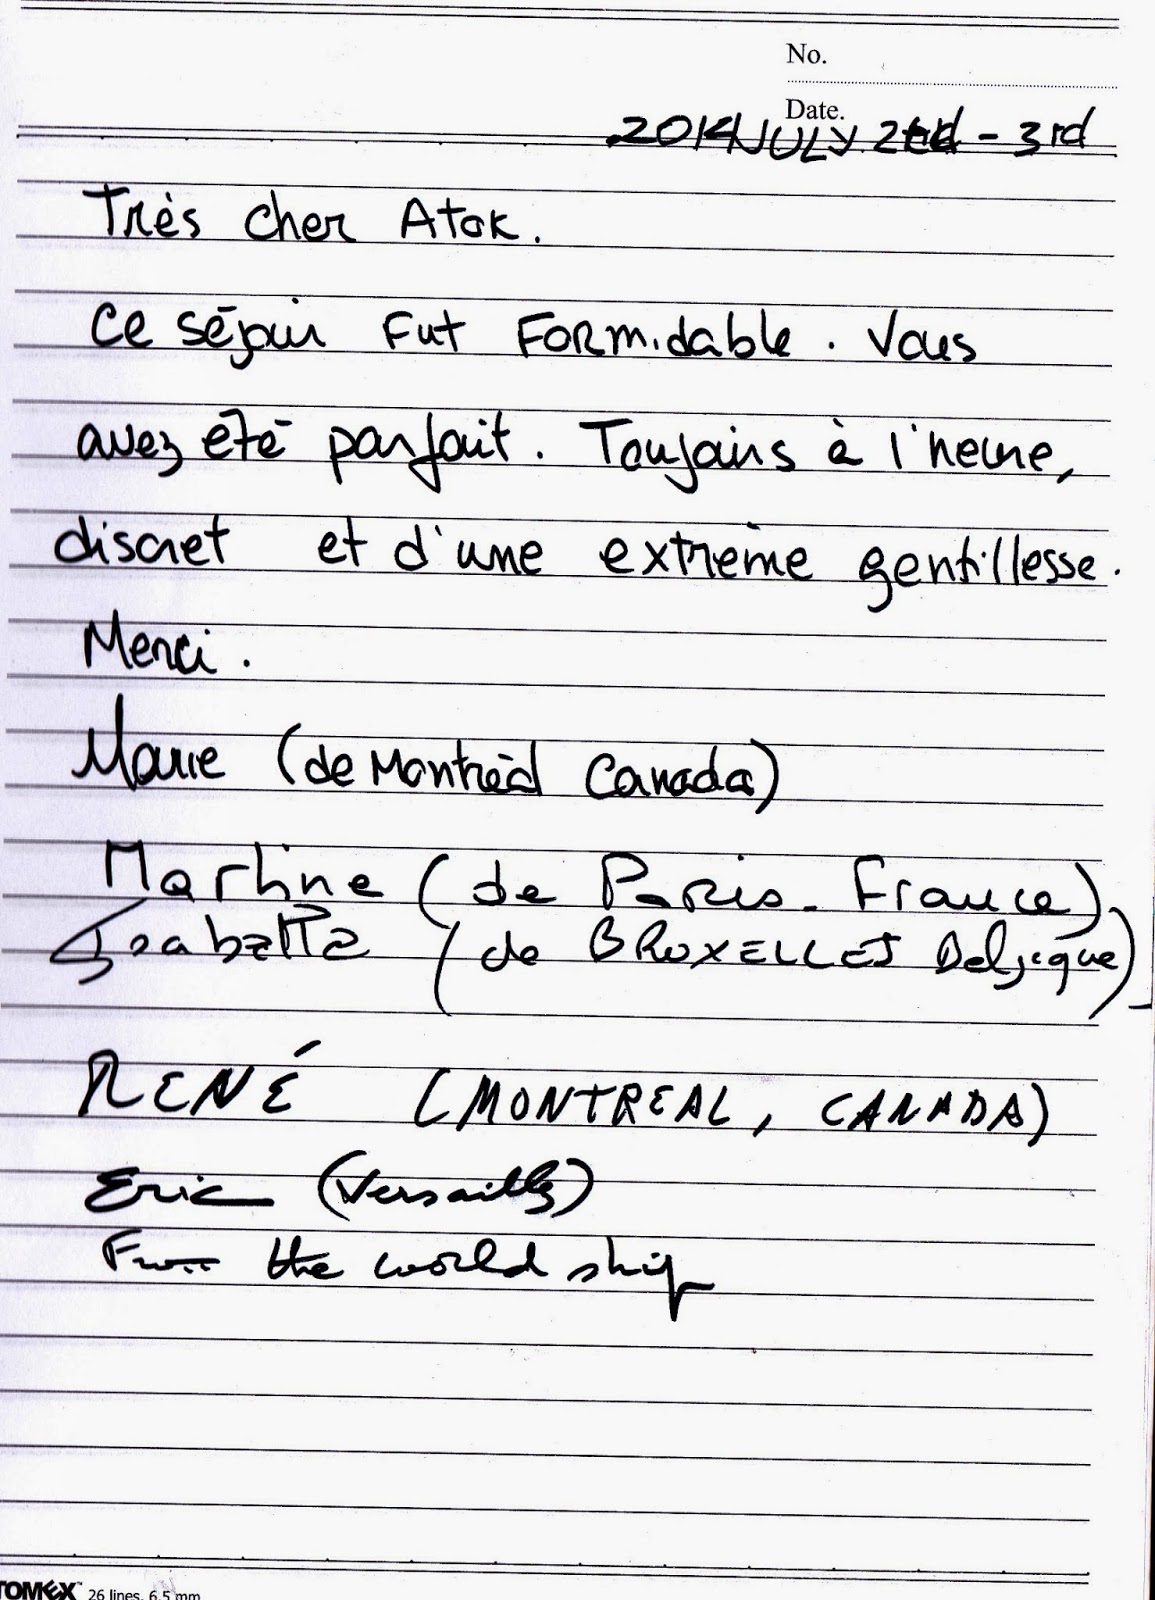 No.
Date.
2014 JULY 2nd - 3rd
Très cher Atok.
Ce séjour fut formidable. Vous
avez été parfait. Toujours à l'heure,
discret et d'une extrème gentillesse.
Merci.
Marie (de Montréal Canada)
Martine (de Paris - France)
Isabelle (de BRUXELLES Belgique)
RENÉ (MONTREAL, CANADA)
Eric (Versailles)
From the world ship
TOMEX 26 lines, 6.5 mm